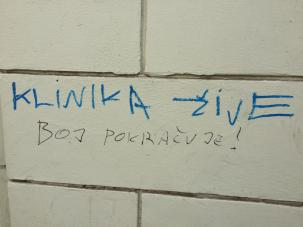 KLINIKA ŽiVE
BOJ POKRAČUJE!